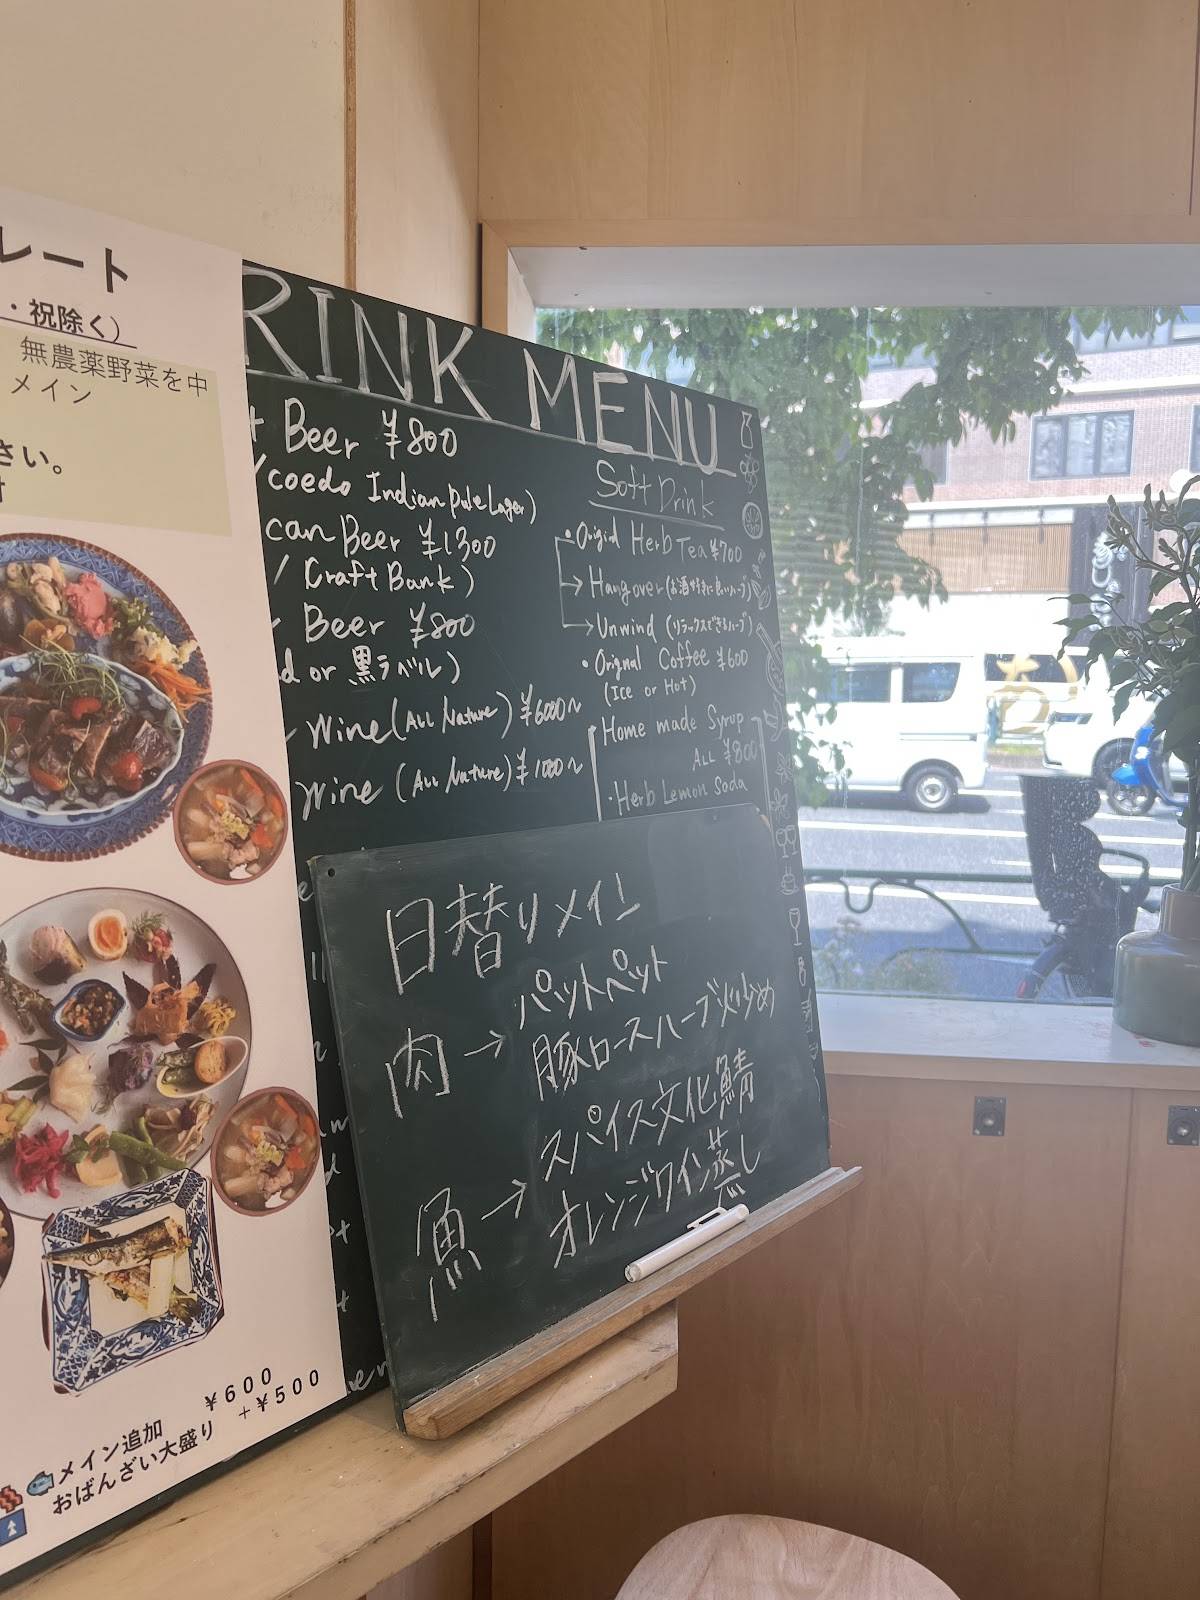 レート
・祝除く）
無農薬野菜を中
メイン
さい。
RINK MENU
Beer ¥800
coedo Indian pale Lager)
can Beer ¥1300
/ Craft Bank)
Beer ¥800
d or 黒ラベル)
Wine (All Nature) ¥6000~
Wine (All Nature) ¥1000~
Soft Drink
・Original Herb Tea ¥700
→ Hangover (お酒好きに良いハーブ)
→ Unwind (リラックスできるハーブ)
・Original Coffee ¥600
(Ice or Hot)
Home made Syrup
ALL ¥800
・Herb Lemon Soda
日替りメイン
肉→ パットペット
豚ロースハーブ炒め
魚→ スパイス文化鯖
オレンジワイン蒸し
メイン追加 ¥600
おばんざい大盛り +¥500